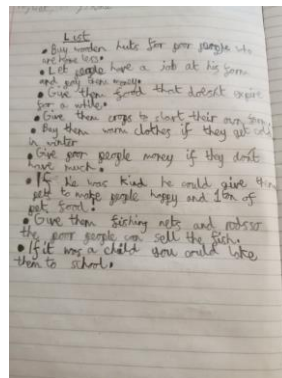 List
• Buy wooden huts for poor people who
are homeless.
• Let people have a job at his farm
and pay them money.
• Give them food that doesn't expire
for a while.
• Give them crops to start their own farm.
• Buy them warm clothes if they get cold
in winter
• Give poor people money if they don't
have much.
• If he was kind he could give them
pets to make people happy and 1 ton of
pet food.
• Give them fishing nets and rods so
the poor people can sell the fish.
• If it was a child you could take
them to school.